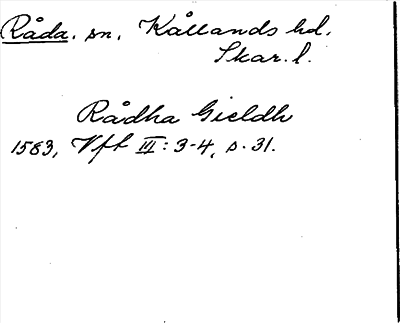 Råda. sn. Kållands hd.
Skar. l.
Rådha Gieldh
1583, Vft III: 3-4, s. 31.